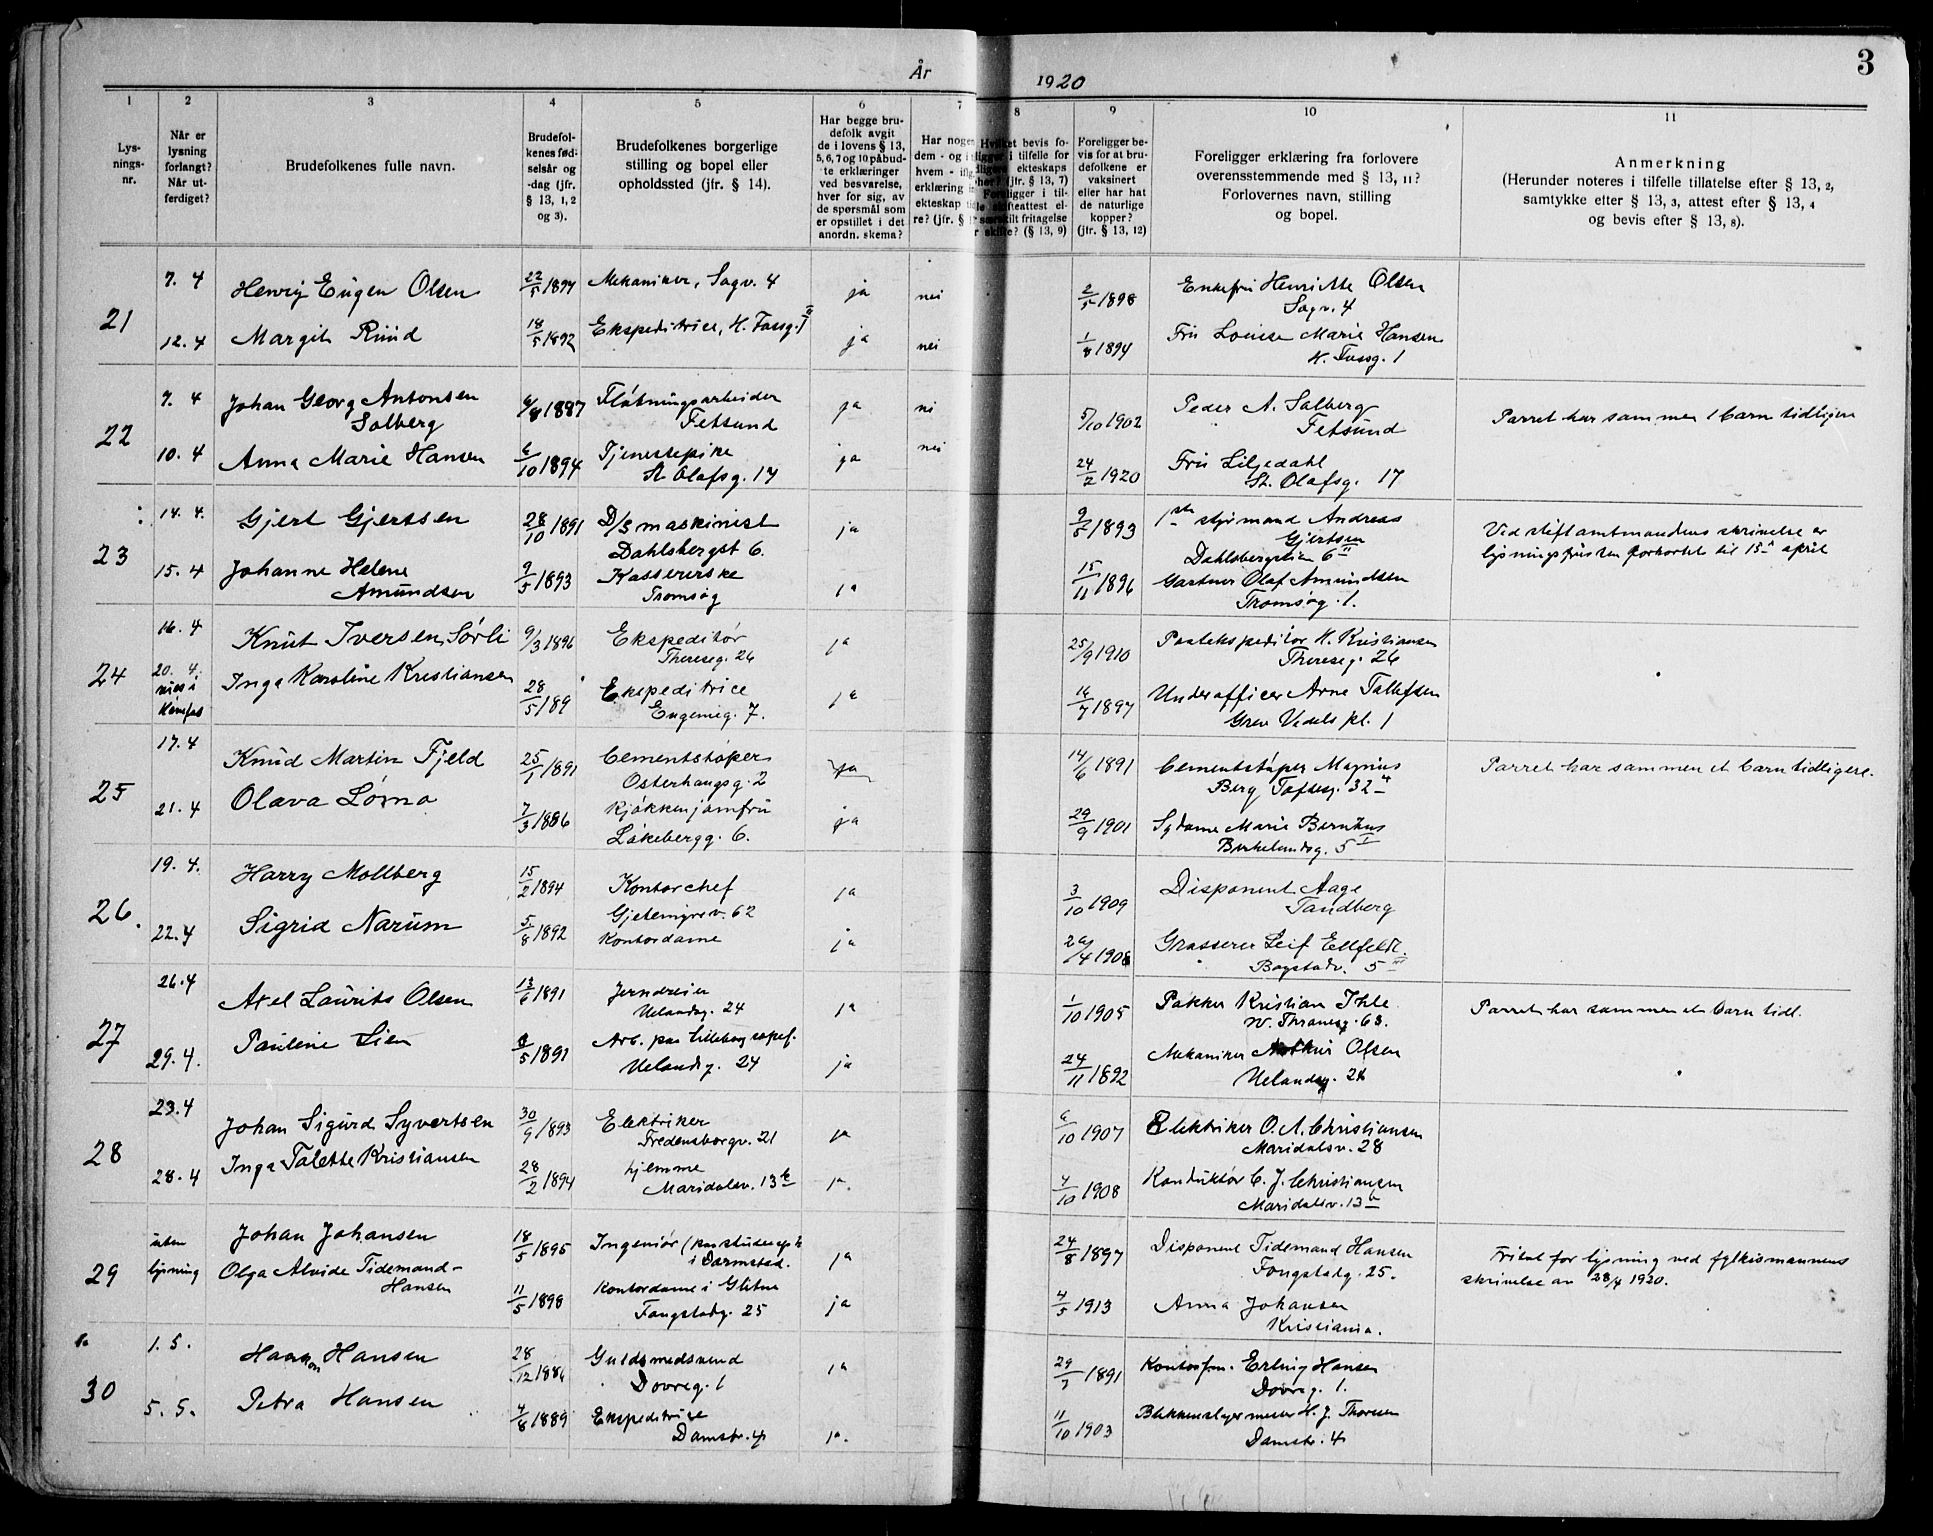 År 1920
3
1
2
3
4
5
6
7
8
9
10
11
Lys-
nings-
nr.
Når er
lysning
forlangt?
Når ut-
ferdiget?
Brudefolkenes fulle navn.
Brudefol-
kenes fød-
selsår og
-dag (jfr.
§ 13, 1, 2
og 3).
Brudefolkenes borgerlige
stilling og bopel eller
opholdssted (jfr. § 14).
Har begge bru-
defolk avgit
de i lovens § 13,
5, 6, 7 og 10 påbud-
te erklæringer
ved besvarelse,
hver for sig, av
de spørsmål som
er opstillet i det
anordn. skema?
Har nogen
dem - og i
hvem - ifl.
erklæring
ekteskap
re? (jfr. §
Hvilket bevis fo-
ligger i tilfelle for
ekteskaps
her? (jfr. § 13, 7)
Foreligger i til-
skifteattest el-
særskilt fritagelse
skifte? (§ 13, 9)
Foreligger be-
vis for at bru-
defolkene er
vaksinert
eller har hat
de naturlige
kopper?
(jfr. § 13, 12)
Foreligger erklæring fra forlovere
overensstemmende med § 13, 11?
Forlovernes navn, stilling
og bopel.
Anmerkning
(Herunder noteres i tilfelle tillatelse efter § 13, 2,
samtykke efter § 13, 3, attest efter § 13, 4
og bevis efter § 13, 8).
21
7. 4 Henrij Eugen Olsen 22/5 1894 Mekaniker, Sagv. 4 ja nei 2/5 1898 Enkefru Henriette Olsen
Sagv. 4
12. 4 Margit Ruud 18/5 1892 Ekspeditrice, H. Tassg. 1 ja nei 1/8 1894 Fru Louise Marie Hansen
H. Tassg. 1
22
7. 4 Johan Georg Antonsen
Solberg 6/8 1887 Fløtningsarbeider
Fetsund ja 5/10 1902 Peder A. Solberg
Fetsund
Parret har sammen 1 barn tidligere
10. 4 Anna Marie Hansen 6/10 1894 Tjenestepike
St. Olafsg. 17 ja nei 24/2 1920 Fru Liljedahl
St. Olafsg. 17
23
14. 4. Gjert Gjertsen 28/10 1891 D/s maskinist
Dahlsbergst 6. ja 9/5 1893 1ste styrmand Andreas
Gjertsen
Dahlsbergstien 6 II
Ved stiftamtmandens skrivelse er
lysningsfristen forkortet til 15de april
15. 4 Johanne Helene
Amundsen 9/5 1893 Kassererske
Tromsøg ja 15/11 1896 Gartner Olaf Amundsen
Tromsøg. 1.
24
16. 4 Knut Iversen Sørli 9/3 1896 Ekspeditør
Thereseg. 26 ja 25/9 1910 Postekspeditør H. Kristiansen
Thereseg. 26
20. 4. Inga Karoline Kristiansen 28/5 189 Ekspeditrice
Eugenieg. 7. ja 16/7 1897 Underofficer Arne Tollefsen
Grev Vedels pl. 1
25
17. 4 Knud Martin Fjeld 25/1 1891 Cementstøper
Osterhausg. 2 ja 14/6 1891 Cementstøper Magnus
Berg Toftesg. 32
Parret har sammen et barn tidligere.
21. 4 Olava Lømo 7/3 1886 Kjøkkenjomfru
Løkebergg. 6. ja 29/9 1901 Sydame Marie Bernhus
Birkelundsg. 5 I
26.
19. 4. Harry Mollberg 15/2 1894 Kontorchef
Gjetemyrsv. 62 ja 3/10 1909 Disponent Aage
Tandberg
22. 4 Sigrid Narum 5/8 1892 Kontordame ja 1908 Grosserer Leif Ellfeldt.
Bogstadv. 5 III
27
26. 4 Axel Laurits Olsen 13/6 1891 Jerndreier
Uelandsg. 24 ja 1/10 1905 Pakker Kristian Ihle
W. Thranesg. 63.
Parret har sammen et barn tidl.
29. 4. Pauline Lien 1891 Arb. paa Lilleborg
Uelandsg. 24 ja 24/11 1892 Mekaniker Arthur Olsen
Uelandsg. 24
28
23. 4 Johan Sigurd Syvertsen 30/9 1893 Elektriker
Fredensborgv. 21 ja 6/10 1907 Elektriker O. A. Christiansen
Maridalsv. 28
28. 4 Inga Talette Kristiansen 28/2 1894 hjemme
Maridalsv. 13 b ja. 4/10 1908 Konduktør C. J. Christiansen
Maridalsv. 13 b
29
uten
lysning
Johan Johansen 18/5 1895 Ingeniør
i Darmstad. ja 24/8 1897 Disponent Tidemand Hansen
Fougstadg. 25.
Fritat for lysning ved fylkesmannens
skrivelse av 28/4 1920.
Olga Alvide Tidemand-
Hansen 11/5 1898 Kontordame i Glitne
Fougstadg. 25 ja 4/5 1913 Anna Johansen
Kristiania.
30
1. 5. Haakon Hansen 28/12 1886 Guldsmedsvend
Dovreg. 1 ja 29/7 1891 Kontorfm. Erling Hansen
Dovreg. 1.
5. 5. Petra Hansen 4/8 1889 Ekspeditrice
Damstr. 4 ja. 11/10 1903 Blikkenslagermester H. J. Thoresen
Damstr. 4